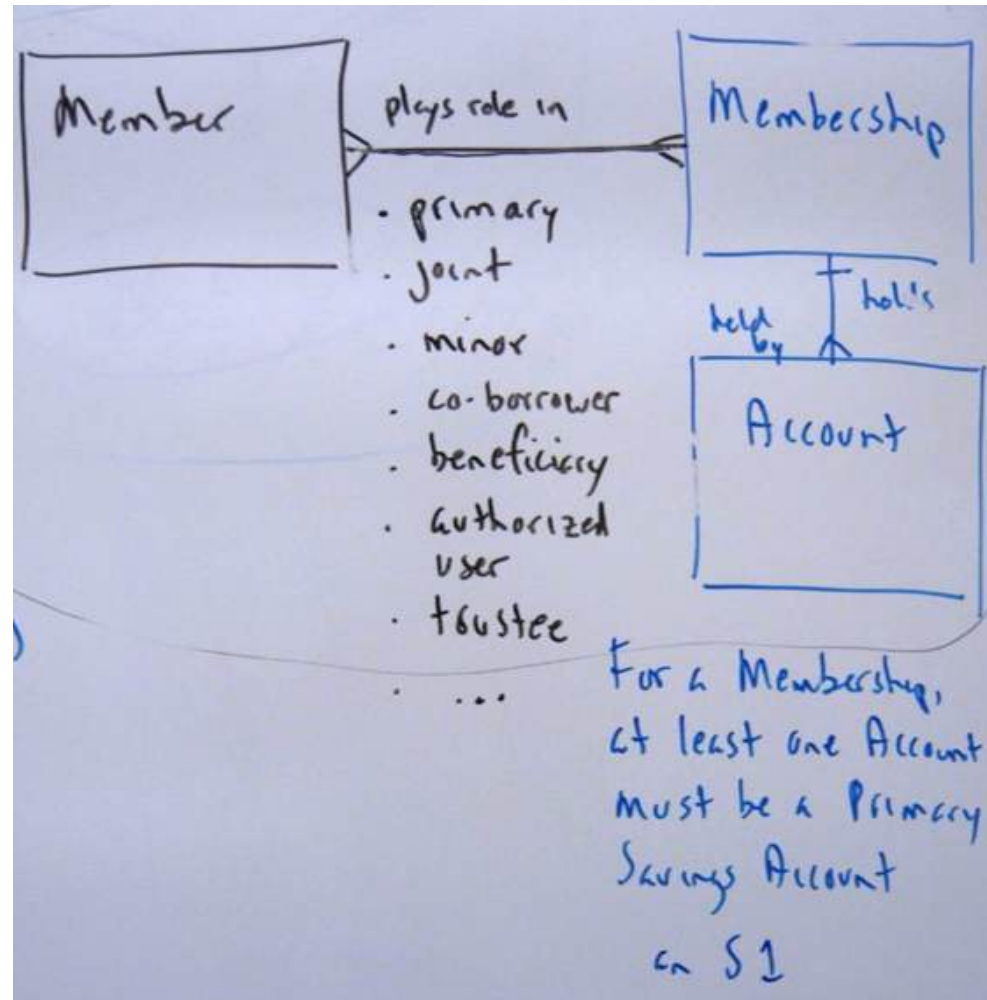 Member
plays role in
Membership
· primary
· joint
· minor
· co-borrower
· beneficiary
· authorized
user
· trustee
· ...
held
by
Account
For a Membership,
at least one Account
must be a Primary
Savings Account
an S1